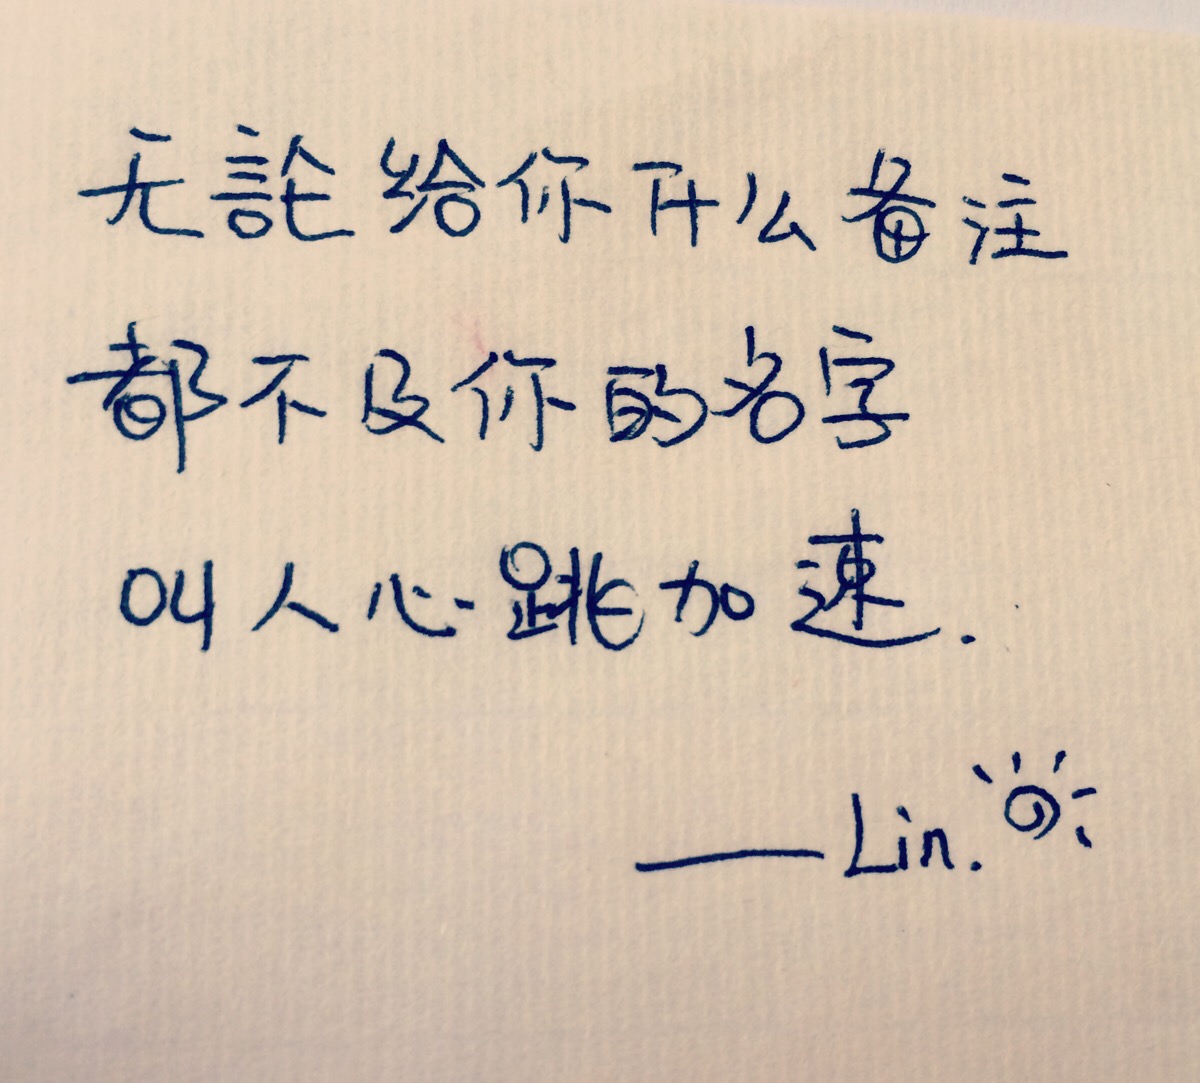 无論给你什么备注
都不及你的名字
叫人心跳加速.
——Lin.